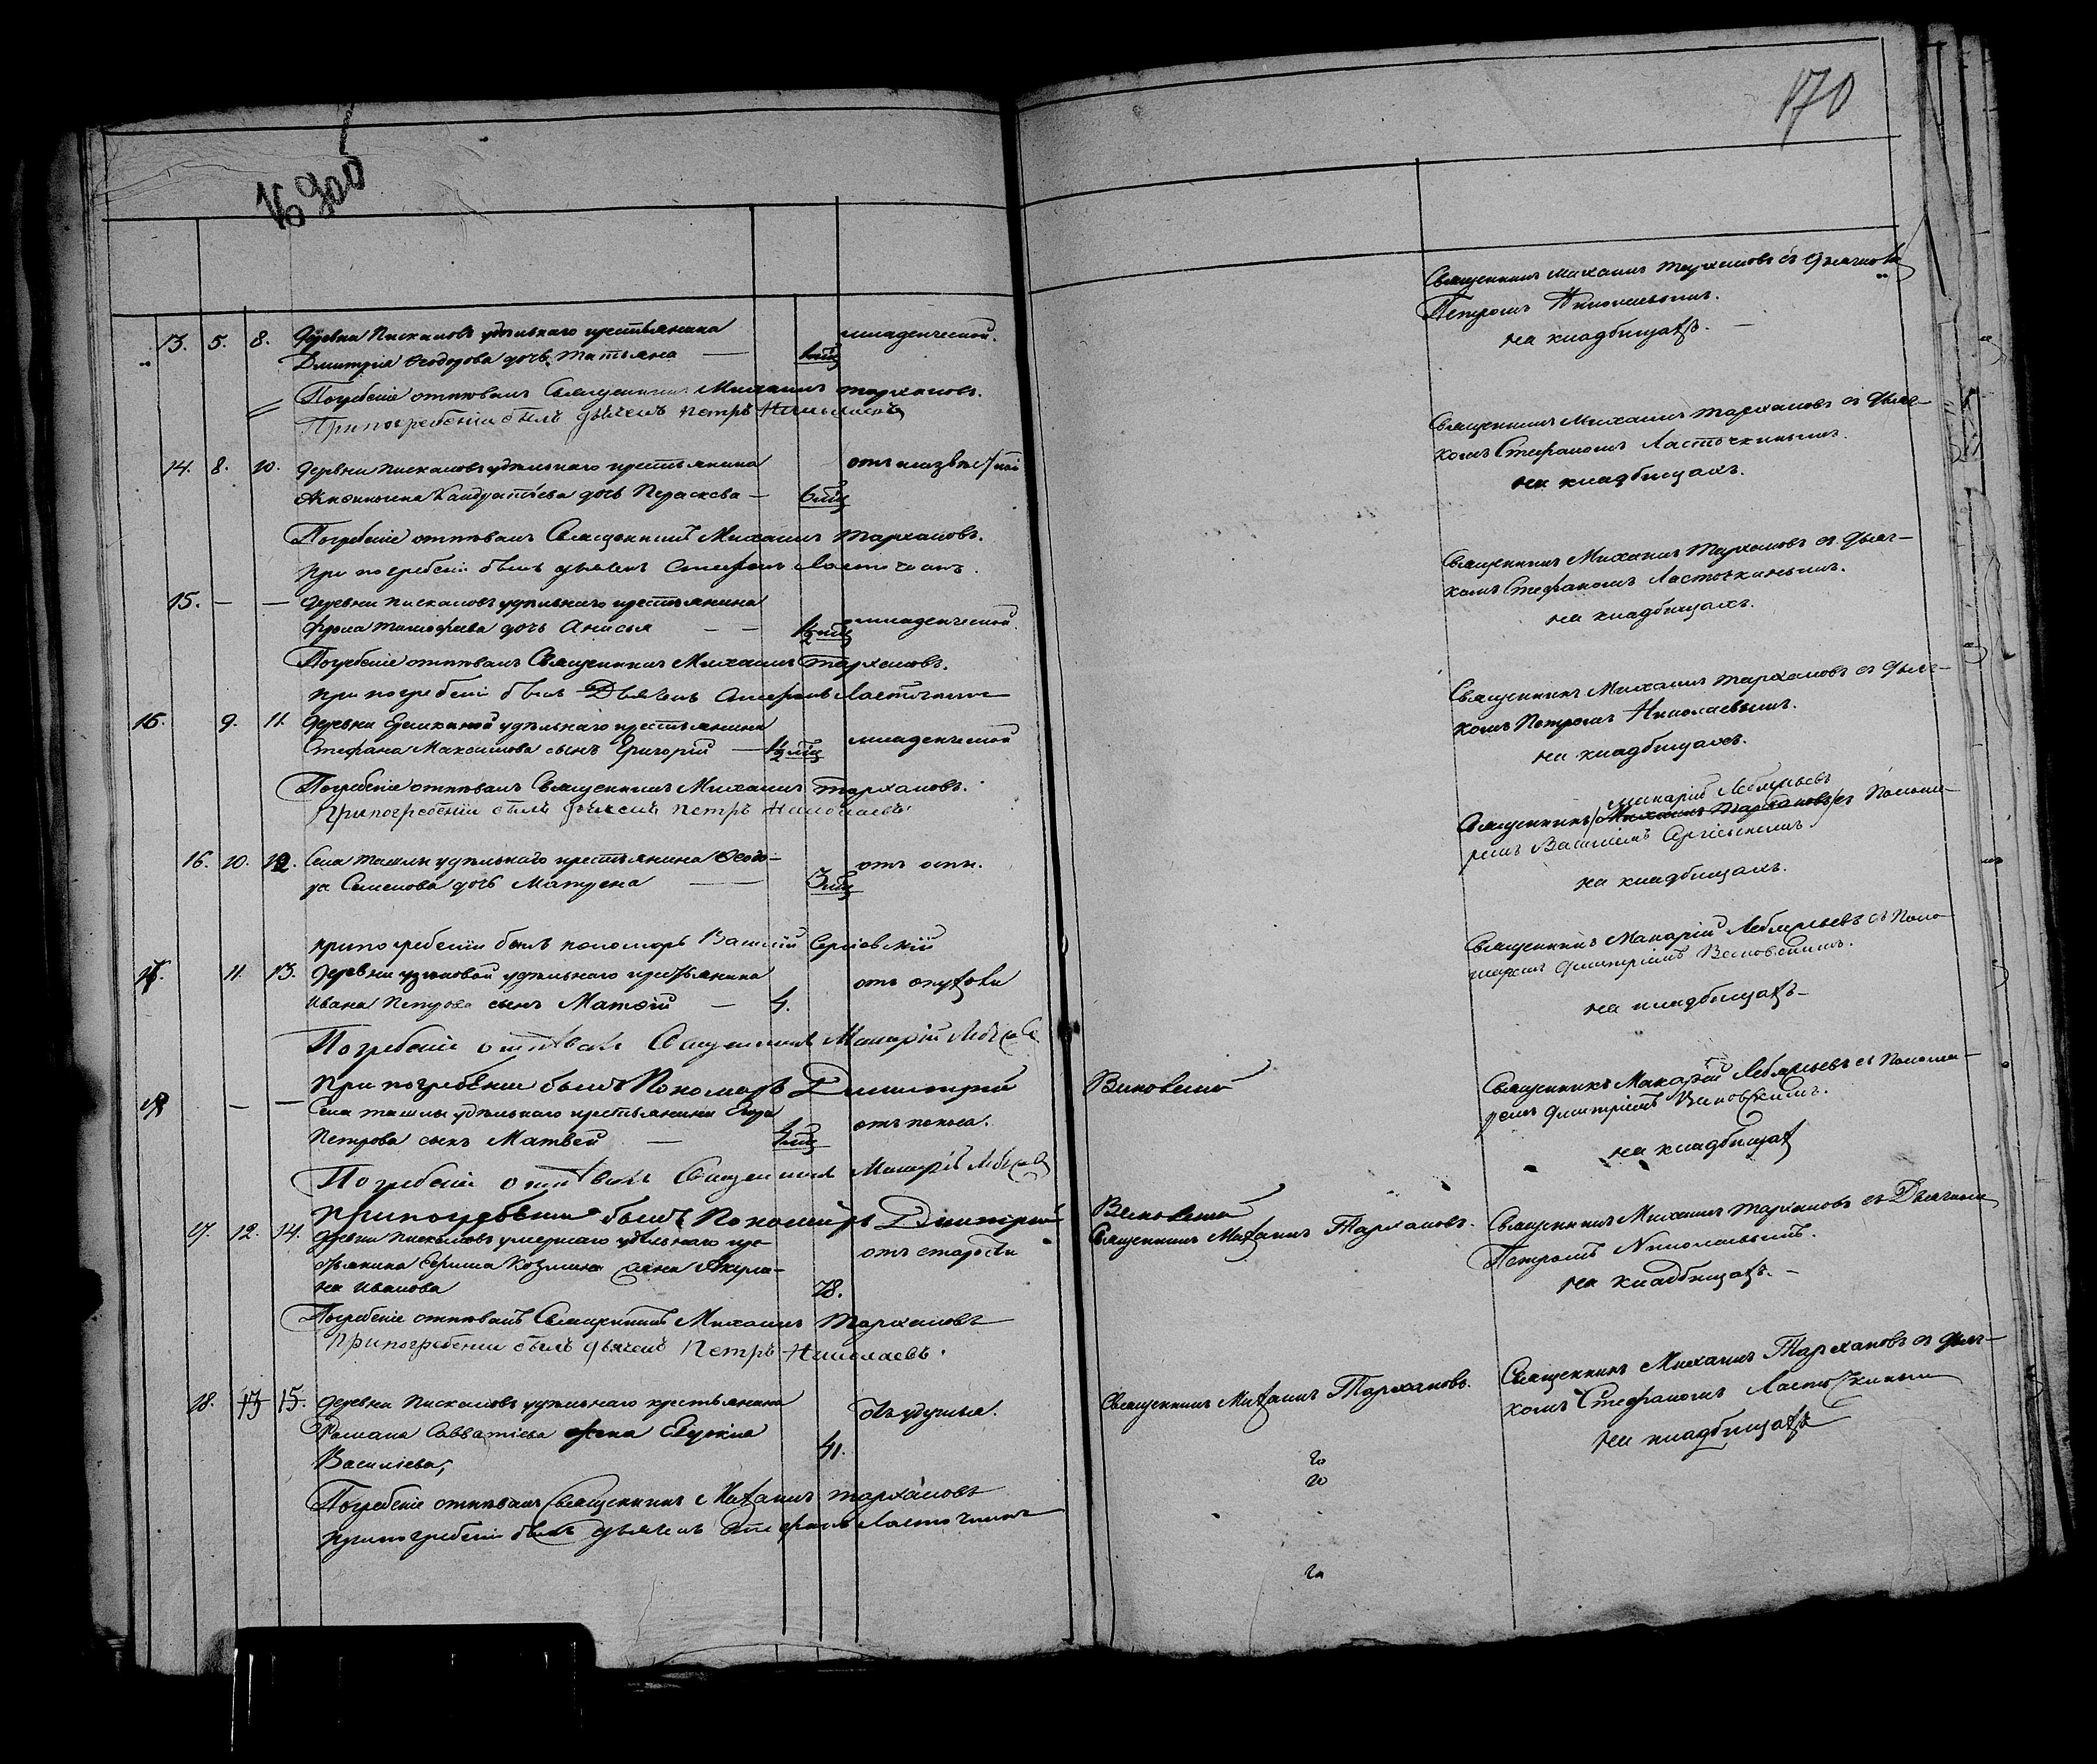 170
13. 5. 8. Деревни Пискаловъ удѣльнаго крестьянина младенческой.
Дмитрія Ѳеодорова дочь Татьяна — 1 мц
Погребеніе отпѣвалъ Священникъ Михаилъ Тархановъ.
При погребеніи былъ дьячекъ Петръ Николаевъ
Священникъ Михаилъ Тархановъ съ дьячкомъ
Петромъ Николаевымъ.
на кладбищахъ. —
14. 8. 10. Деревни Пискаловъ удѣльнаго крестьянина
Кандратьева дочь Параскева — 6 мц
Погребеніе отпѣвалъ Священникъ Михаилъ Тархановъ.
При погребеніи былъ дьячекъ Стефанъ Ласточкинъ.
Священникъ Михаилъ Тархановъ съ дьяч-
комъ Стефаномъ Ласточкинымъ.
на кладбищахъ.
15. — — Деревни Пискаловъ удѣльнаго крестьянина
Фрола Тимофеева дочь Анисья — — 1/2 мц младенческой
Погребеніе отпѣвалъ Священникъ Михаилъ Тархановъ.
при погребеніи былъ Дьячекъ Стефанъ Ласточкинъ
Священникъ Михаилъ Тархановъ съ дьяч-
комъ Стефаномъ Ласточкинымъ.
на кладбищахъ.
15. 9. 11. Деревни удѣльнаго крестьянина
Стефана Максимова сынъ Григорій — 1/2 мц младенческой
Погребеніе отпѣвалъ Священникъ Михаилъ Тархановъ.
При погребеніи былъ дьячекъ Петръ Николаевъ
Священникъ Михаилъ Тархановъ съ дьяч-
комъ Петромъ Николаевымъ.
на кладбищахъ.
16. 10. 12. Села Ташлы удѣльнаго крестьянина Ѳеодо-
ра Семенова дочь Матрена — 3 мц отъ оспы.
при погребеніи былъ пономарь Василій Сергіевскій
Макарій Лебедевъ
Священникъ Михаилъ Тархановъ съ Понома-
ремъ Василіемъ Сергіевскимъ
на кладбищахъ.
11. 13. Деревни удѣльнаго крестьянина
Ивана Петрова сынъ Матѳій — 4.
Погребеніе отпѣвалъ Священникъ Макарій
При погребеніи былъ Пономарь Димитрій
Священникъ Макарій съ Поно-
маремъ Димитріемъ
на кладбищахъ —
— — Села Ташлы удѣльнаго крестьянина
Петрова сынъ Матвей — 4 мц отъ поноса.
Погребеніе отпѣвалъ Священникъ Макарій
При погребеніи былъ Пономарь Димитрій
Священникъ Макарій съ Понома-
ремъ Димитріемъ
на кладбищахъ
17. 12. 14. Деревни Пискаловъ умершаго удѣльнаго кре-
стьянина Ефима Козмина жена Акули-
на Иванова 78. отъ старости
Погребеніе отпѣвалъ Священникъ Михаилъ Тархановъ
При погребеніи былъ дьячекъ Петръ Николаевъ.
Священникъ Михаилъ Тархановъ.
Священникъ Михаилъ Тархановъ съ Дьячкомъ
Петромъ Николаевымъ.
на кладбищахъ. —
18. 13 15. Деревни Пискаловъ удѣльнаго крестьянина
Романа Савватіева жена Евдокія
Василіева; 41. отъ удушья.
Погребеніе отпѣвалъ Священникъ Михаилъ Тархановъ
при погребеніи былъ дьячекъ Стефанъ Ласточкинъ
Священникъ Михаилъ Тархановъ.
Священникъ Михаилъ Тархановъ съ дьяч-
комъ Стефаномъ Ласточкинымъ
на кладбищахъ